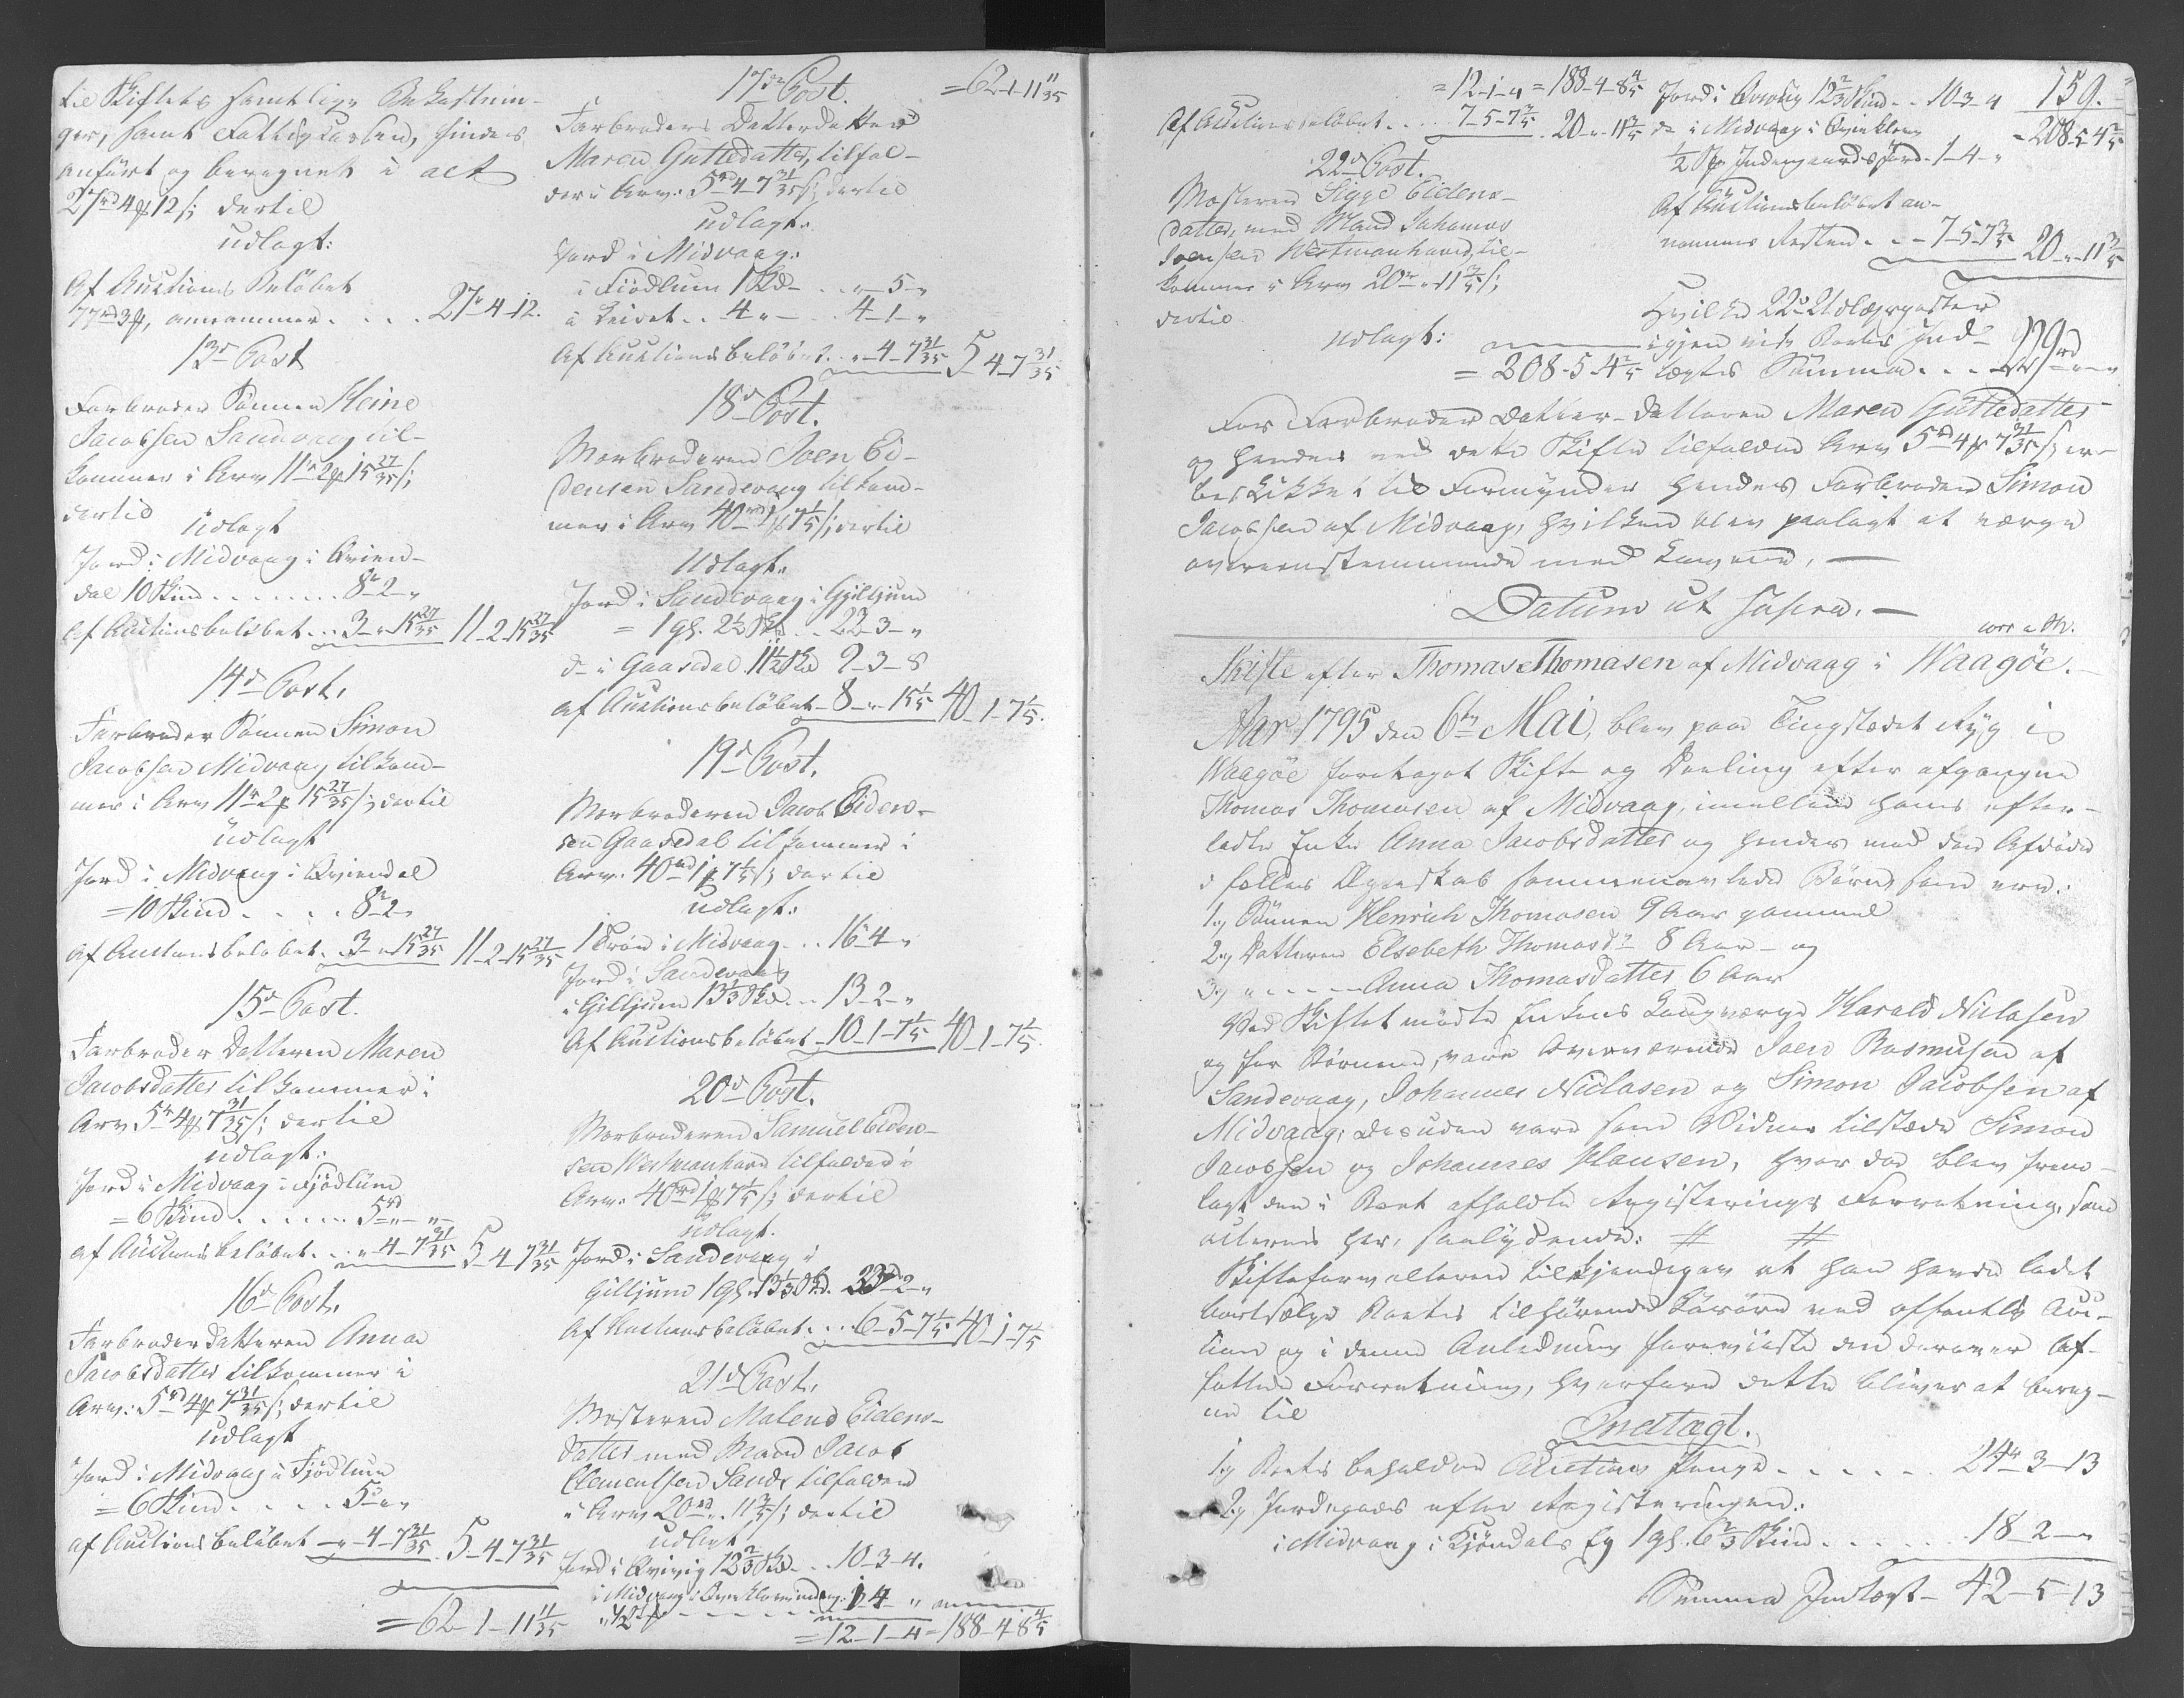 til Skiftets samtlige Bekostnin-
ger, samt Fattigkassen, findes
anført og beregnet i alt
27rd 4ß 12s; dertil
udlagt:
Af Auctions Beløbet
77rd 3ß, annammer . . . . 27-4-12.
13d Post
Farbroder Sønnen Heine
Jacobsen Sandevaag til-
kommer i Arv 11r 2ß 15 27/35 s;
dertil
Udlagt
Jord i Midvaag i Qvien-
dal 10 Skind . . . . . . . 8-2-"
Af Auctionsbeløbet . . . 3-"-15 27/35 11-2-15 27/35
14d Post.
Farbroder Sønnen Simon
Jacobsen Midvaag tilkom-
mer i Arv 11r 2ß 15 27/35 s; dertil
Udlagt
Jord i Midvaag i Qviendal
=10 Skind . . . . 8r 2-"
Af Auctionsbeløbet . 3-"-15 27/35 11-2-15 27/35
15d Post.
Farbroder Datteren Maren
Jacobsdatter tilkommer i
Arv 5r 4ß 7 31/35 s; dertil
udlagt:
Jord i Midvaag i Fjödlum
=6 Skind . . . . . . 5rd "-"
af Auctionsbeløbet . . "-4-7 31/35 5-4-7 31/35
16d Post.
Farbroder Datteren Anna
Jacobsdatter tilkommer i
Arv: 5rd 4ß 7 31/35 s; dertil
udlagt
Jord i Midvaag i Fjödlum
=6 Skind . . . . 5-"-"
af Auctionsbeløbet -"-4-7 31/35 5-4-7 31/35
=62-1-11 11/35
17de Post. =62-1-11 11/35
Farbroders Datterdatter
Maren Guttedatter, tilfal-
der i Arv: 5rd 4-7 31/35 s; dertil
udlagt.
Jord i Midvaag:
i Fiödlum 1 Skd - . . "-5-"
i Leivet . . 4 " - . . 4-1-"
Af Auctionsbeløbet . . "-4-7 31/35 5-4-7 31/35
18d Post.
Morbroderen Joen Ei-
densen Sandevaag tilkom-
mer i Arv 40rd 1ß 7 1/5 s; dertil
Udlagt.
Jord i Sandevaag i Gilljum
= 1 gl. 2 1/2 Skd . . 22-3-"
do i Gaasedal 11 1/2 Skd 9-3-8
af Auctionsbeløbet - 8-"-15 1/5 40-1-7 1/5.
19d Post.
Morbroderen Jacob Eiden-
sen Gaasedal tilkommer i
Arv: 40rd 1ß 7 1/5 s; dertil
udlagt:
1 Trøe i Midvaag . . . 16-4-"
Jord i Sandevaag
i Gilljum 13 1/3 Skd . . 13-2-"
Af Auctionsbeløbet - 10-1-7 1/5 40-1-7 1/5.
20d Post.
Morbroderen Samuel Eiden-
sen Westmanhavn tilfalder i
Arv: 40rd 1ß 7 1/5 s; dertil
udlagt.
Jord i Sandevaag i
Gilljum 1 gl. 13 1/3 Skd. 33rd 2-"
Af Auctionsbeløbet . . . 6-5-7 1/5 40-1-7 1/5
21d Post.
Mosteren Malene Eidens-
datter med Mand Jacob
Clementsen Sand, tilfalder
i Arv 20rd ". 11 3/5 s; dertil
udlagt
Jord i Qvivig 12 2/3 Skd . . 10-3-4.
i Midvaag i 1-4 "
"1/2
=12-1-4 = 188-4-8 4/5
=12-1-4 = 188-4-8 4/5
Af Auctionsbeløbet . . . . . 7-5-7 3/5 20-"-11 3/5
22d Post.
Mosteren Sigge Eidens-
datter, med Mand Johannes
Joensen Westmanhavn, til-
kommer i Arv 20rd " 11 3/5 s;
dertil
udlagt:
= 208-5-4 2/5
159.
Jord i Qvivig 12 2/3 Skind . . 10-3-4
do i Midvaag i = 208-5-4 2/5
1/2 Indengaards Jord - 1-4-"
Af Auctionsbeløbet an-
nammes Resten . . - 7-5-7 3/5 20-"-11 3/5
Hvilke 22de Udlægsposter
igjen viser Boets Ind-
lægtes Summa . . . 229rd "-"
For Farbroder Datter-Datteren Maren Guttedatter
og hendes ved dette Skifte tilfaldne Arv 5rd 4ß 7 31/35 s; er
beskikket til Formynder hendes Farbroder Simon
Jacobsen af Midvaag, hvilken blev paalagt at værge
overeenstemmende med Loven. —
Datum ut supra. —
Skifte efter Thomas Thomasen af Midvaag i Waagöe.
Aar 1795 den 6te Mai, blev paa Tingstedet Ryg i
Waagöe foretaget Skifte og Deeling efter afgangne
Thomas Thomasen af Midvaag, imellem hans efter-
ladte Enke Anna Jacobsdatter og hendes med den Afdøde
i fælles Ægteskab sammenavlede Børn, som ere:
1.) Sønnen Henrich Thomasen 9 Aar gammel
2.) Datteren Elsebeth Thomasdr 8 Aar - og
3.) " - - - - - Anna Thomasdatter 6 Aar
Ved Skiftet mødte Enkens Laugværge Harald Niclasen
og for Børnene, vare overværende Joen Rasmusen af
Sandevaag, Johannes Niclasen og Simon Jacobsen af
Midvaag; desuden vare som Vidner tilstæde Simon
Jacobsen og Johannes Hansen, hvor da blev frem-
lagt den i Boet afholdte Registerings Forretning, som
acteres her, saalydende: # #
Skifteforvalteren tilkjendegav at han havde ladet
bortsælge Boets tilhørende Løsøre ved offentlig Auc-
tion og i denne Anledning foreviiste den derover af-
fattede Forretning, hvorfore dette bliver at bereg-
ne til
Indtægt.
1.) Boets beholdne Auctions Penge . . . . . 24r 3-13
2.) Jordegods efter Registeringen.
i Midvaag i Kjöndals Ey 1 gl. 6 2/3 Skind . . . . . . . 18-2-"
Summa Indtægt - 42-5-13